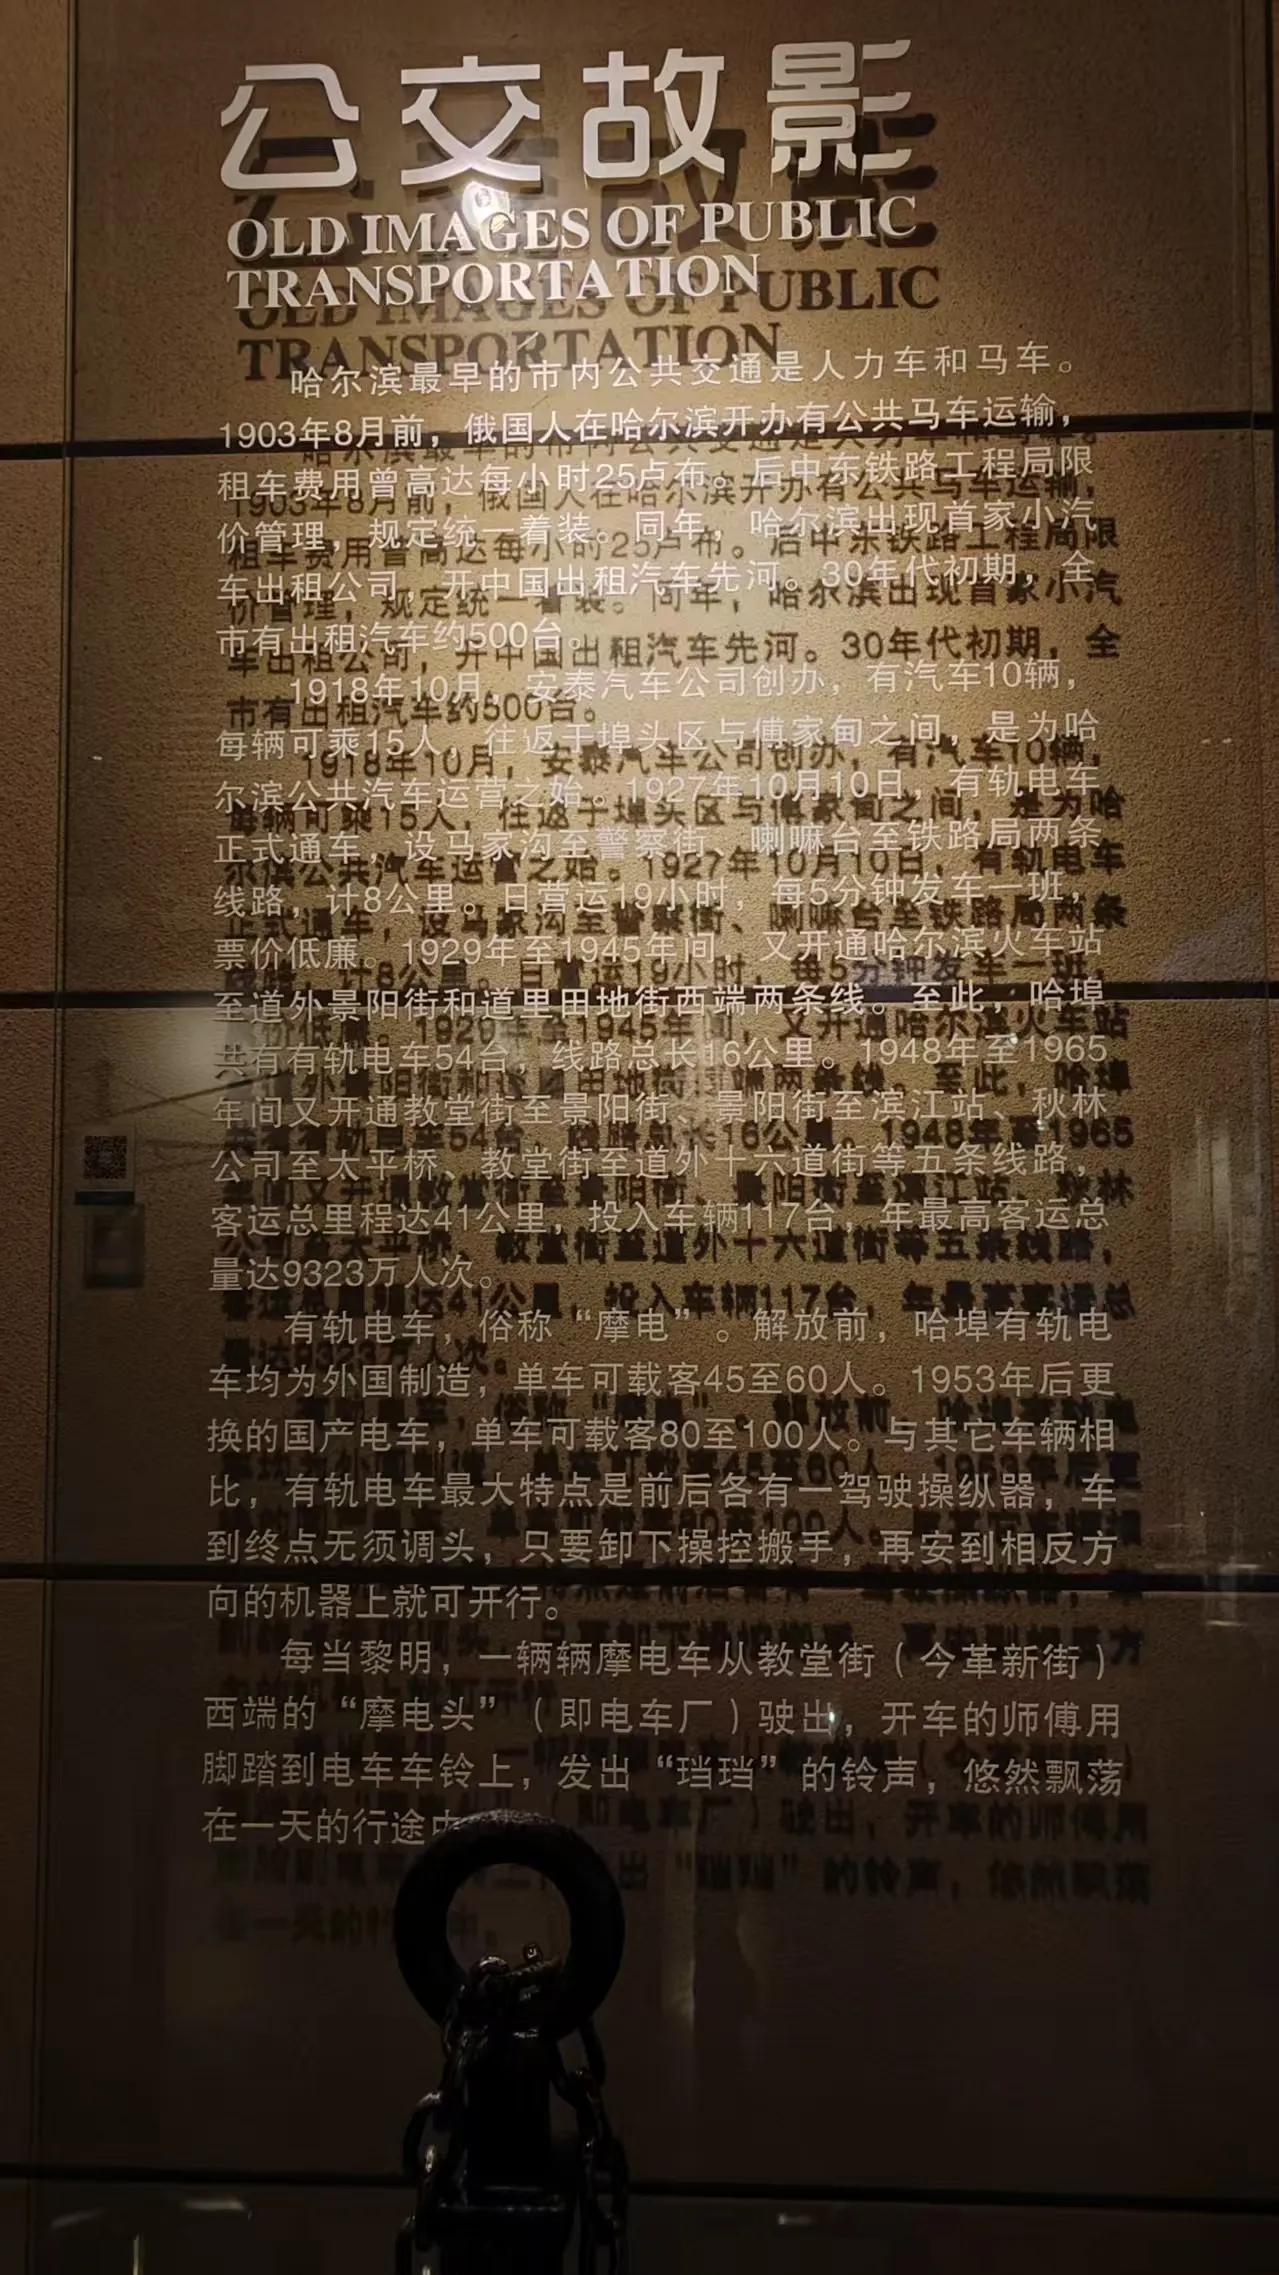 公交故影
OLD IMAGES OF PUBLIC
TRANSPORTATION
哈尔滨最早的市内公共交通是人力车和马车。
1903年8月前，俄国人在哈尔滨开办有公共马车运输，
租车费用曾高达每小时25卢布。后中东铁路工程局限
价管理，规定统一着装。同年，哈尔滨出现首家小汽
车出租公司，开中国出租汽车先河。30年代初期，全
市有出租汽车约500台。
1918年10月，安泰汽车公司创办，有汽车10辆，
每辆可乘15人，往返于埠头区与傅家甸之间，是为哈
尔滨公共汽车运营之始。1927年10月10日，有轨电车
正式通车，设马家沟至警察街、喇嘛台至铁路局两条
线路，计8公里。日营运19小时，每5分钟发车一班，
票价低廉。1929年至1945年间，又开通哈尔滨火车站
至道外景阳街和道里田地街西端两条线。至此，哈埠
共有有轨电车54台，线路总长16公里。1948年至1965
年间又开通教堂街至景阳街、景阳街至滨江站、秋林
公司至太平桥、教堂街至道外十六道街等五条线路，
客运总里程达41公里，投入车辆117台，年最高客运总
量达9323万人次。
有轨电车，俗称“摩电”。解放前，哈埠有轨电
车均为外国制造，单车可载客45至60人。1953年后更
换的国产电车，单车可载客80至100人。与其它车辆相
比，有轨电车最大特点是前后各有一驾驶操纵器，车
到终点无须调头，只要卸下操控搬手，再安到相反方
向的机器上就可开行。
每当黎明，一辆辆摩电车从教堂街（今革新街）
西端的“摩电头”（即电车厂）驶出，开车的师傅用
脚踏到电车车铃上，发出“珰珰”的铃声，悠然飘荡
在一天的行途中